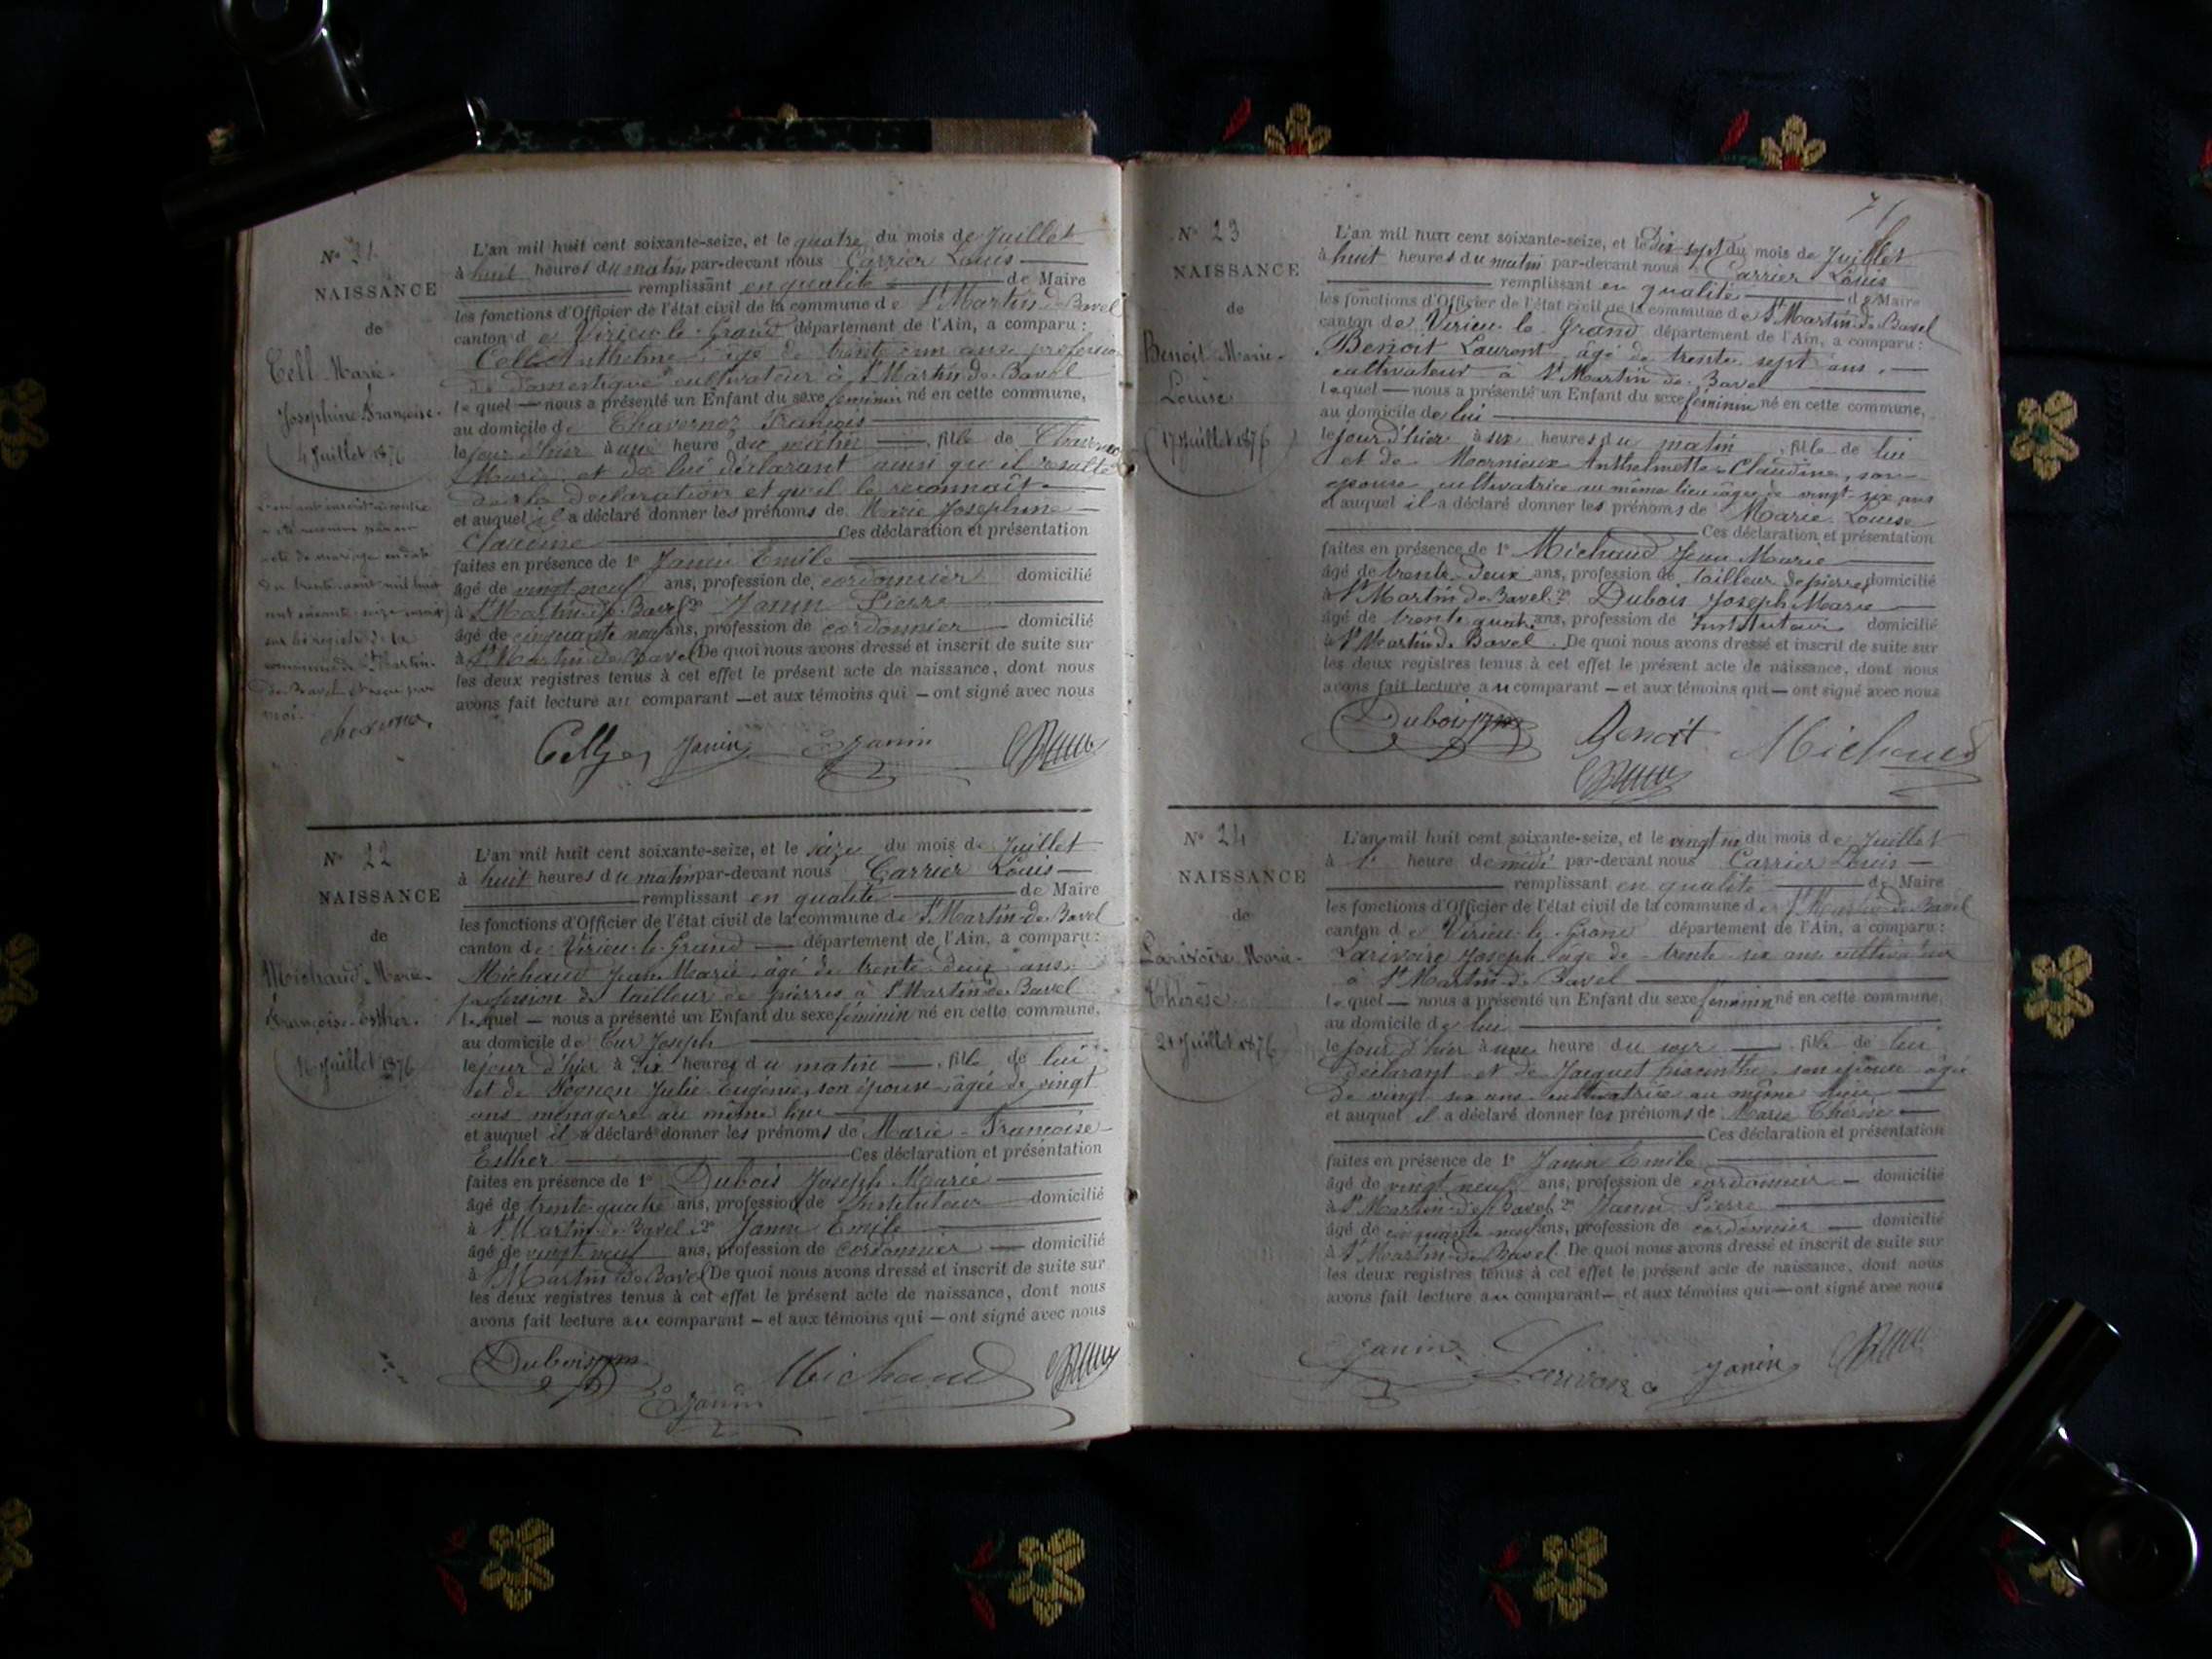 N° 21
NAISSANCE
de
Cell Marie
Josephine Françoise
4 Juillet 1876
L'an mil huit cent soixante-seize, et le quatre du mois de Juillet
à huit heures du matin par-devant nous Carrier Louis
remplissant en qualité de Maire
les fonctions d'Officier de l'état civil de la commune de St Martin de Bavel
canton de Virieu le Grand département de l'Ain, a comparu :
Cell Anthelme, âgé de trente un ans profession
de Domestique cultivateur à St Martin de Bavel
lequel nous a présenté un Enfant du sexe féminin né en cette commune,
au domicile de Chavernoz François
le jour d'hier à une heure du matin, fille de
Marie et de lui déclarant ainsi qu'il résulte
de sa déclaration et qu'il le reconnaît
et auquel il a déclaré donner les prénoms de Marie Josephine
Claudine Ces déclaration et présentation
faites en présence de 1° Janin Emile
âgé de vingt neuf ans, profession de cordonnier domicilié
à St Martin de Bavel 2° Janin Pierre
âgé de cinquante neuf ans, profession de cordonnier domicilié
à St Martin de Bavel De quoi nous avons dressé et inscrit de suite sur
les deux registres tenus à cet effet le présent acte de naissance, dont nous
avons fait lecture au comparant et aux témoins qui ont signé avec nous
Janin E Janin
N° 22
NAISSANCE
de
Michaud Marie
Françoise Esther
16 Juillet 1876
L'an mil huit cent soixante-seize, et le seize du mois de Juillet
à huit heures du matin par-devant nous Carrier Louis
remplissant en qualité de Maire
les fonctions d'Officier de l'état civil de la commune de St Martin de Bavel
canton de Virieu le Grand département de l'Ain, a comparu :
Michaud Jean Marie, âgé de trente deux ans
profession de tailleur de pierres à St Martin de Bavel
lequel nous a présenté un Enfant du sexe féminin né en cette commune,
au domicile de Joseph
le jour d'hier à dix heures du matin, fille de lui
et de Julie Eugénie, son épouse âgée de vingt
ans ménagère au même lieu
et auquel il a déclaré donner les prénoms de Marie - Françoise
Esther Ces déclaration et présentation
faites en présence de 1° Dubois Joseph Marie
âgé de trente quatre ans, profession de Instituteur domicilié
à St Martin de Bavel 2° Janin Emile
âgé de vingt neuf ans, profession de cordonnier domicilié
à St Martin de Bavel De quoi nous avons dressé et inscrit de suite sur
les deux registres tenus à cet effet le présent acte de naissance, dont nous
avons fait lecture au comparant – et aux témoins qui – ont signé avec nous
Dubois Michaud
E Janin
N° 23
NAISSANCE
de
Benoit Marie
Louise
17 Juillet 1876
L'an mil huit cent soixante-seize, et le Dix-sept du mois de Juillet
à huit heures du matin par-devant nous Carrier Louis
remplissant en qualité de Maire
les fonctions d'Officier de l'état civil de la commune de St Martin de Bavel
canton de Virieu le Grand département de l'Ain, a comparu :
Benoit Laurent, âgé de trente sept ans,
cultivateur à St Martin de Bavel
lequel nous a présenté un Enfant du sexe féminin né en cette commune,
au domicile de lui
le jour d'hier à six heures du matin, fille de lui
et de Anthelmette Claudine, son
épouse cultivatrice au même lieu âgée de vingt-six ans
et auquel il a déclaré donner les prénoms de Marie Louise
Ces déclaration et présentation
faites en présence de 1° Michaud Jean Marie
âgé de trente deux ans, profession de tailleur de pierres domicilié
à St Martin de Bavel 2° Dubois Joseph Marie
âgé de trente quatre ans, profession de Instituteur domicilié
à St Martin de Bavel De quoi nous avons dressé et inscrit de suite sur
les deux registres tenus à cet effet le présent acte de naissance, dont nous
avons fait lecture au comparant – et aux témoins qui – ont signé avec nous
Dubois Benoit Michaud
N° 24
NAISSANCE
de
Larivoire Marie
Thérèse
21 Juillet 1876
L'an mil huit cent soixante-seize, et le vingt un du mois de Juillet
à 1e heure de midi par-devant nous Carrier Louis
remplissant en qualité de Maire
les fonctions d'Officier de l'état civil de la commune de St Martin de Bavel
canton de Virieu le Grand département de l'Ain, a comparu :
Larivoire Joseph âgé de trente six ans cultivateur
à St Martin de Bavel
lequel nous a présenté un Enfant du sexe féminin né en cette commune,
au domicile de lui
le jour d'hier à une heure du soir, fille de lui
déclarant et de Jacquet Hiacinthe, son épouse âgée
de vingt six ans cultivatrice au même lieu
et auquel il a déclaré donner les prénoms de Marie Thérèse
Ces déclaration et présentation
faites en présence de 1° Janin Emile
âgé de vingt neuf ans, profession de cordonnier domicilié
à St Martin de Bavel 2° Janin Pierre
âgé de cinquante neuf ans, profession de cordonnier domicilié
à St Martin de Bavel De quoi nous avons dressé et inscrit de suite sur
les deux registres tenus à cet effet le présent acte de naissance, dont nous
avons fait lecture au comparant – et aux témoins qui – ont signé avec nous
Janin Larivoire Janin